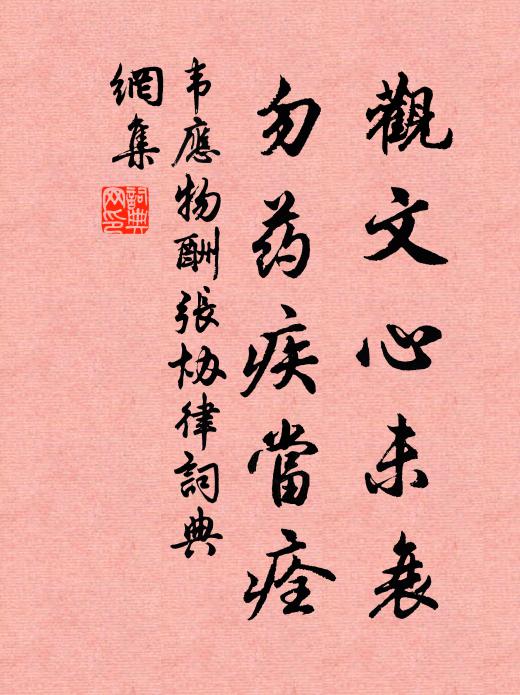 觀文心未衰
勿药疾當痊
韦應物酬張协律詞典
網集
詞典
网印